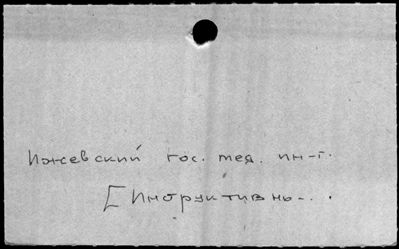 Ижевский гос. мед. ин-т.
[Инструктивны...